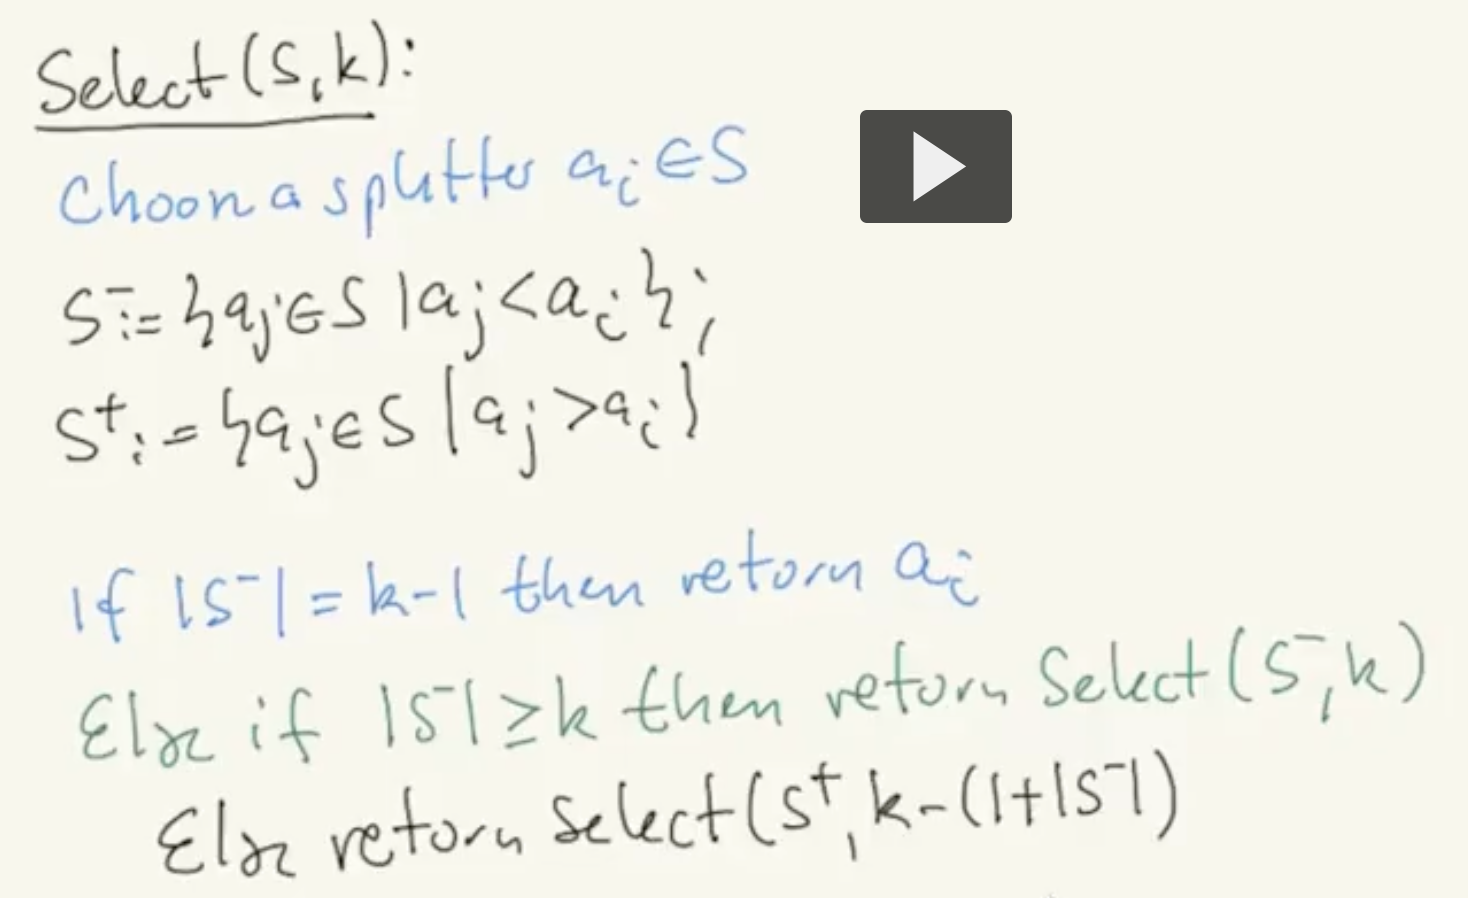 Select(S,k):
Choose a splitter aᵢ ∈ S
S⁻ := {aⱼ ∈ S | aⱼ < aᵢ};
S⁺ := {aⱼ ∈ S | aⱼ > aᵢ}
If |S⁻| = k-1 then return aᵢ
Else if |S⁻| ≥ k then return Select(S⁻,k)
Else return Select(S⁺,k-(1+|S⁻|)